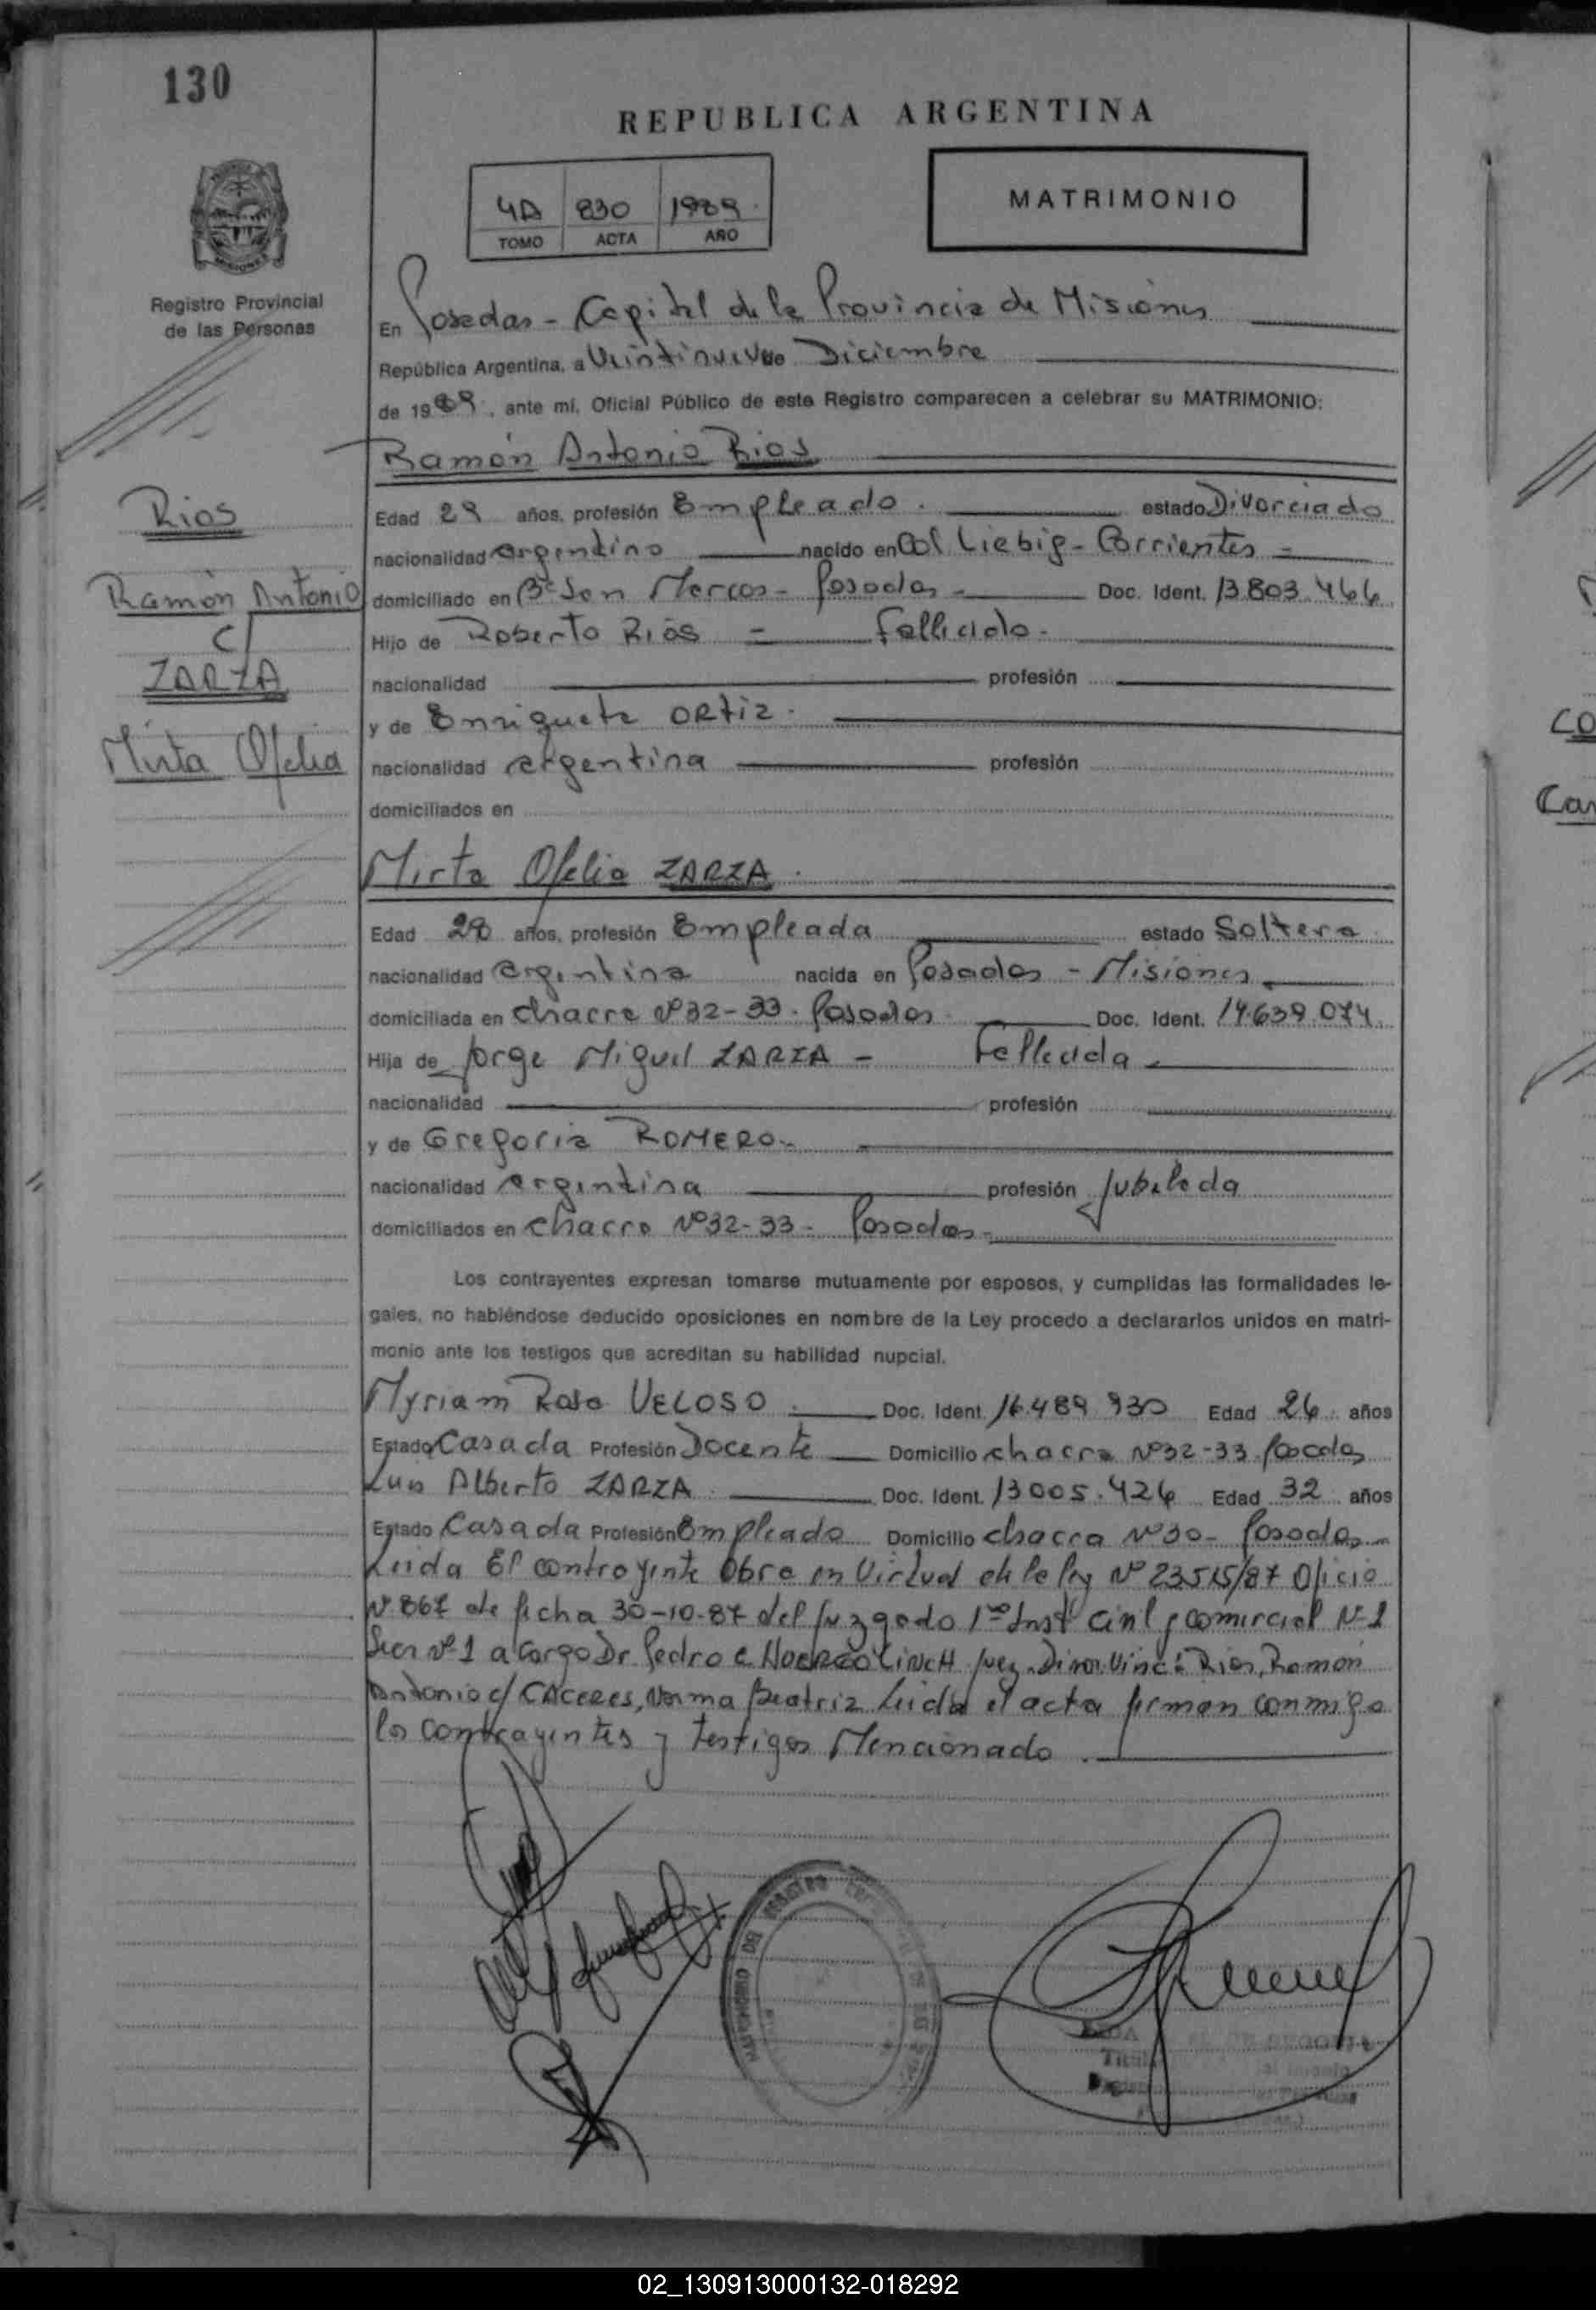 130
REPUBLICA ARGENTINA
4A 830 1989
TOMO ACTA AÑO
MATRIMONIO
Registro Provincial
de las Personas
En Posadas - Capital de la Provincia de Misiones
República Argentina, a Veintinueve de Diciembre
de 1989, ante mí, Oficial Público de este Registro comparecen a celebrar su MATRIMONIO:
Ramón Antonio Rios
Rios
Ramón Antonio
c/
ZARZA
Mirta Ofelia
Edad 29 años, profesión Empleado. estado Divorciado
nacionalidad argentino nacido en Col Liebig - Corrientes -
domiciliado en Bº San Marcos - Posadas - Doc. Ident. 13.803.466
Hijo de Roberto Rios = Fallecido -
nacionalidad profesión
y de Enriqueta ORTIZ.
nacionalidad argentina profesión
domiciliados en
Mirta Ofelia ZARZA.
Edad 28 años, profesión Empleada estado Soltera
nacionalidad argentina nacida en Posadas - Misiones
domiciliada en chacra Nº 32-33. Posadas Doc. Ident. 14.639.074.
Hija de Jorge Miguel ZARZA - Fallecida
nacionalidad profesión
y de Gregoria ROMERO.-
nacionalidad argentina profesión Jubilada
domiciliados en chacra Nº 32-33 - Posadas -
Los contrayentes expresan tomarse mutuamente por esposos, y cumplidas las formalidades le-
gales, no habiéndose deducido oposiciones en nombre de la Ley procedo a declararlos unidos en matri-
monio ante los testigos que acreditan su habilidad nupcial.
Myriam Rosa VELOSO. Doc. Ident. 16.489.930 Edad 26 años
Estado Casada Profesión Docente Domicilio chacra Nº 32-33. Posadas
Luis Alberto ZARZA. Doc. Ident. 13005.426 Edad 32 años
Estado Casada Profesión Empleado Domicilio chacra Nº 30 - Posadas
Leida El contrayente obra en Virtud de la ley Nº 23515/87 Oficio
Nº 867 de fecha 30-10-87 del Juzgado 1ra Inst Civil y Comercial Nº 1
Secr Nº 1 a cargo Dr Pedro C Juez. Divor. Vinc: Rios, Ramón
Antonio c/ CACERES, Norma Beatriz Leida el acta firman conmigo
los contrayentes y testigos Mencionado.
02_130913000132-018292